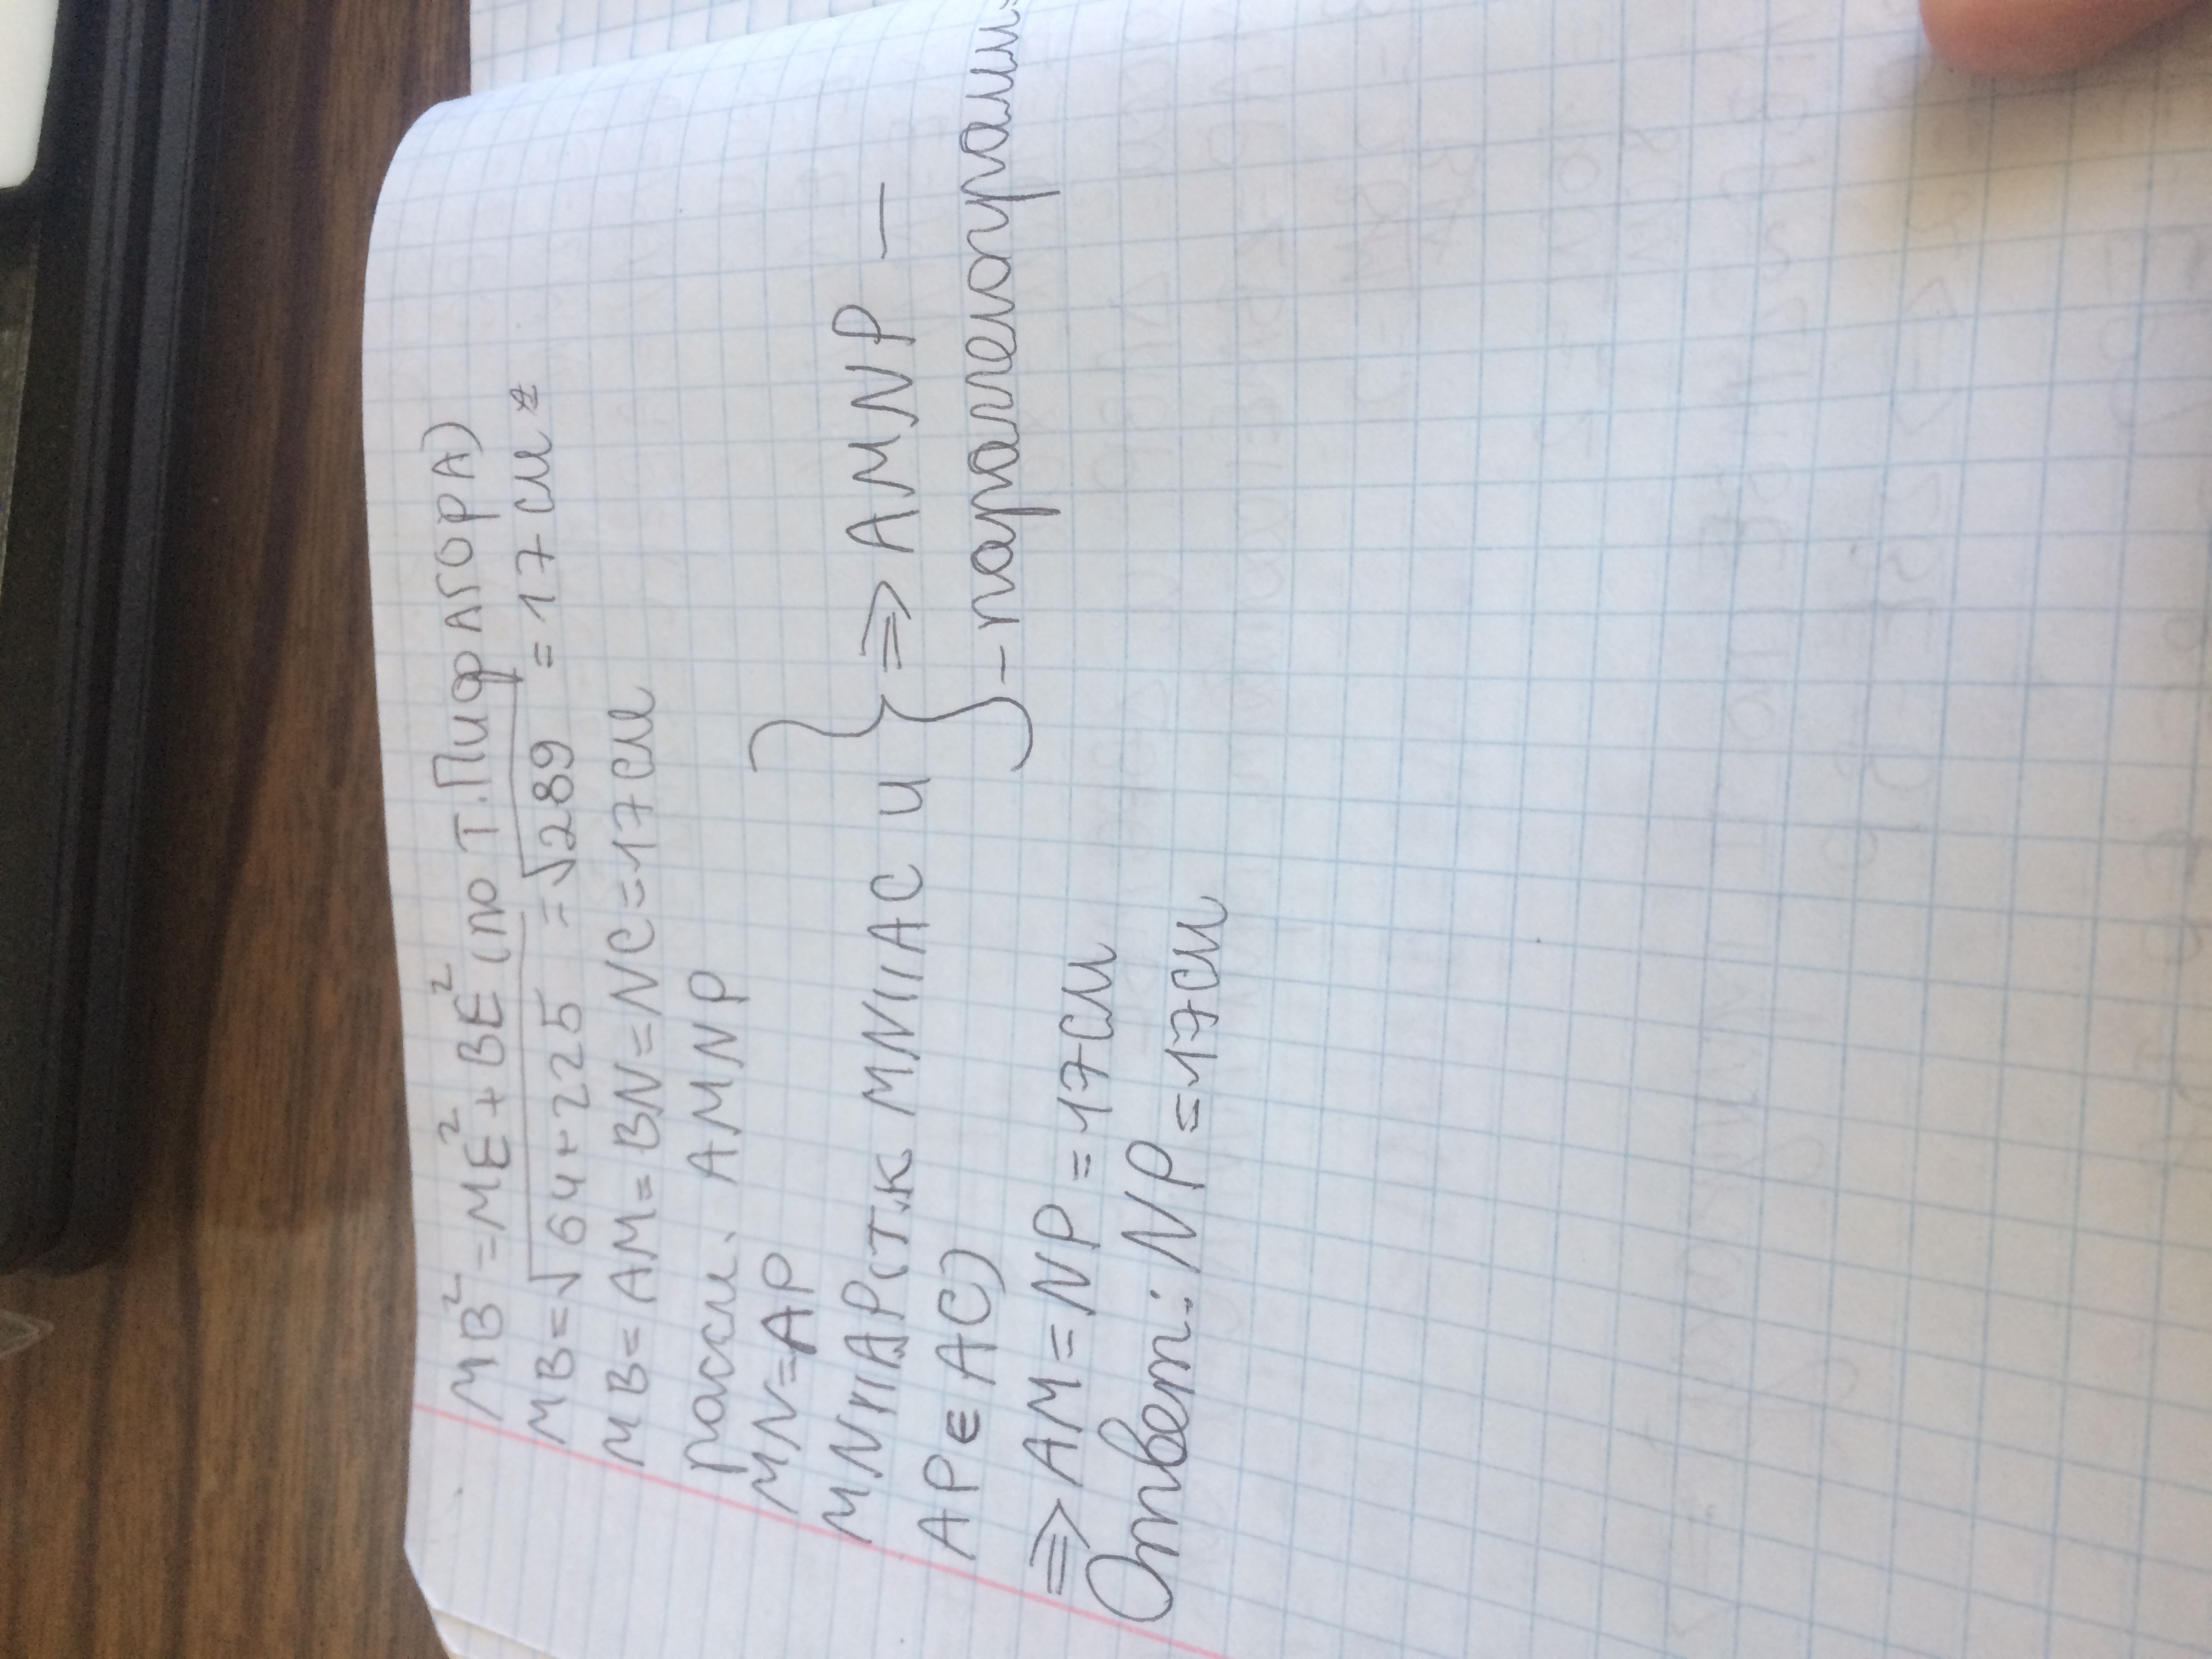 MB² = ME² + BE² (по Т. Пифагора)
MB = √64+225 = √289 = 17 см
MB = AM = BN = NC = 17 см
рассм. AMNP
MN = AP
MN || AP (т.к MN || AC и
AP ∈ AC)
} ⇒ AMNP –
– параллелограмм
⇒ AM = NP = 17 см
Ответ: NP = 17 см